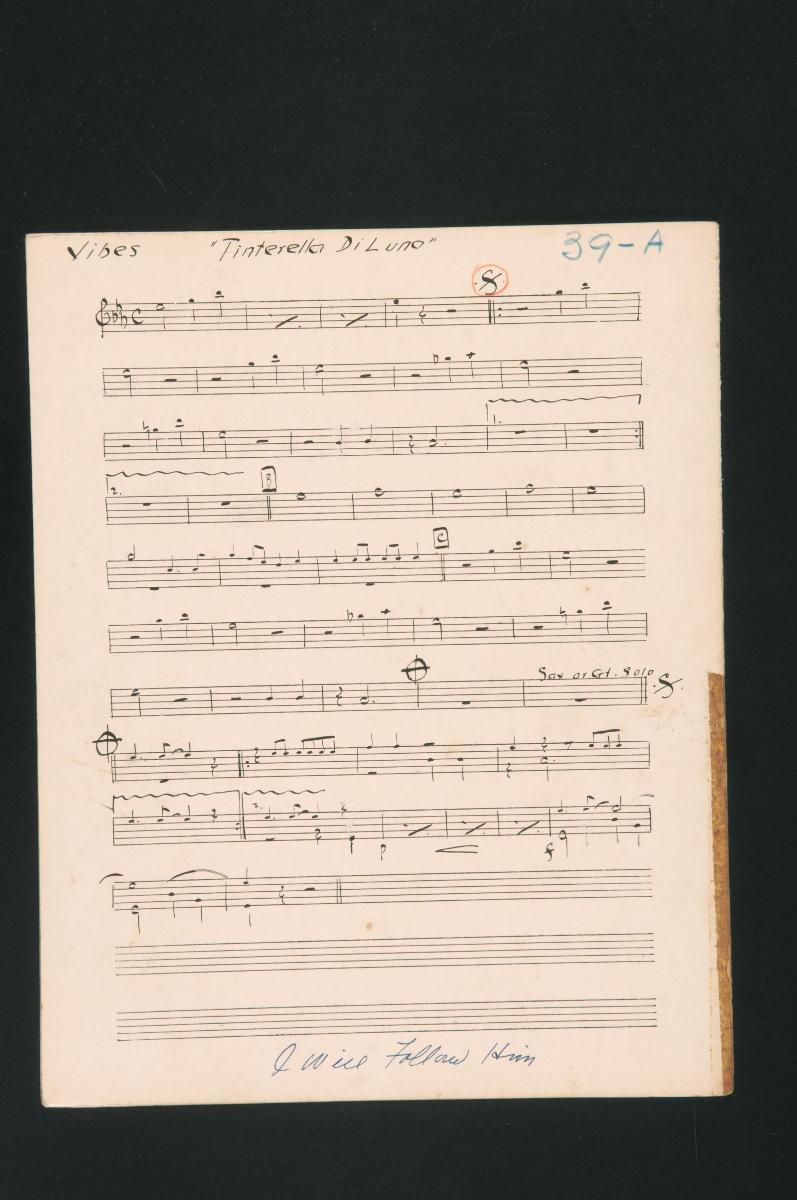 Vibes "Tinterella Di Luna" 39-A
1.
2. B
C
Sax or Gt. Solo
2.
p f
I Will Follow Him